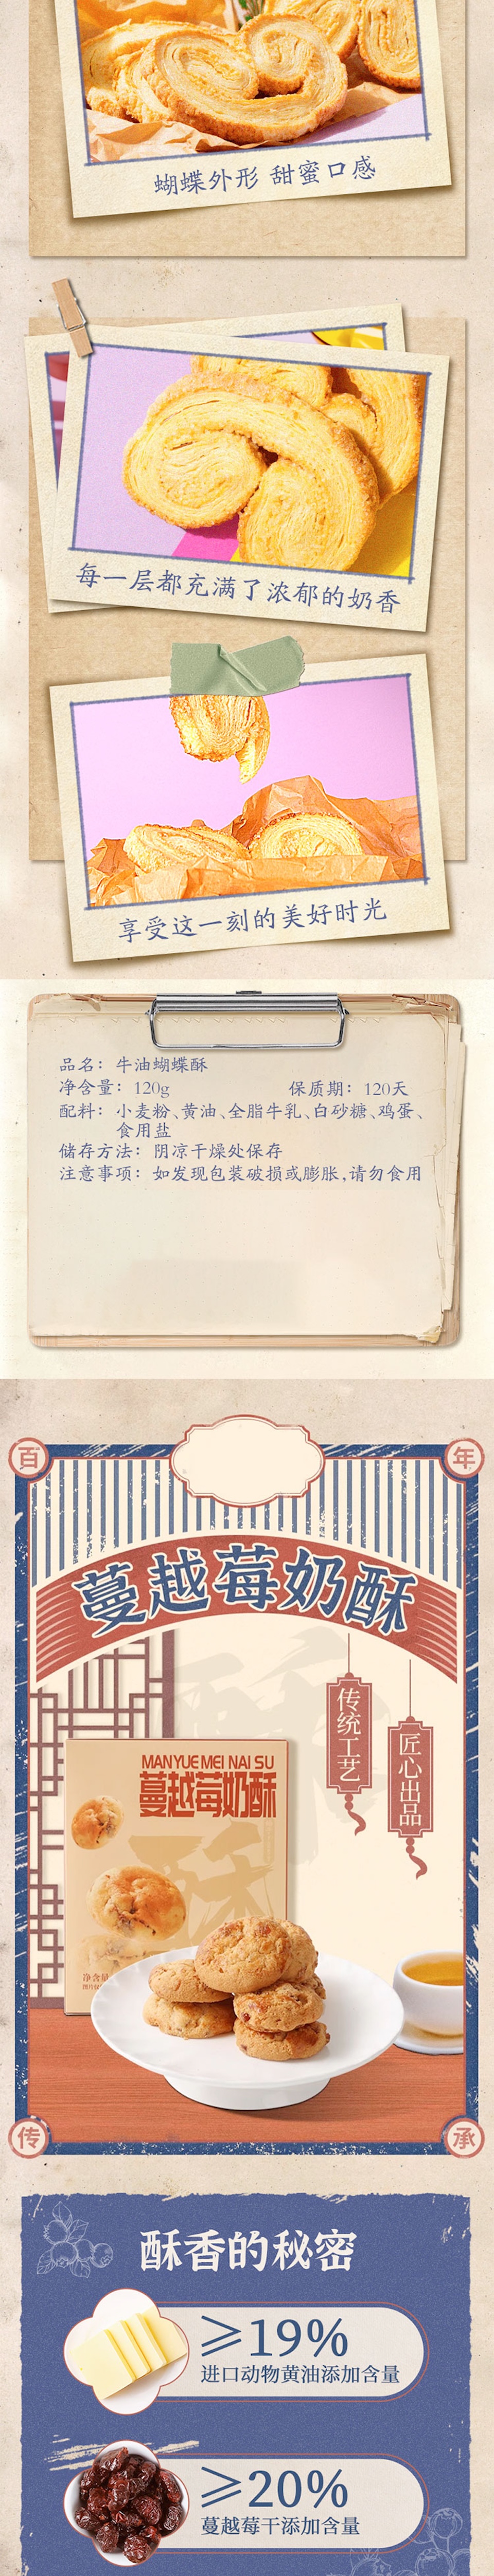 蝴蝶外形 甜蜜口感
每一层都充满了浓郁的奶香
享受这一刻的美好时光
品名：牛油蝴蝶酥
净含量：120g 保质期：120天
配料：小麦粉、黄油、全脂牛乳、白砂糖、鸡蛋、
食用盐
储存方法：阴凉干燥处保存
注意事项：如发现包装破损或膨胀,请勿食用
百 年
蔓越莓奶酥
传统工艺
匠心出品
MANYUEMEI NAI SU
蔓越莓奶酥
酥
净含量
传 承
酥香的秘密
≥19%
进口动物黄油添加含量
≥20%
蔓越莓干添加含量